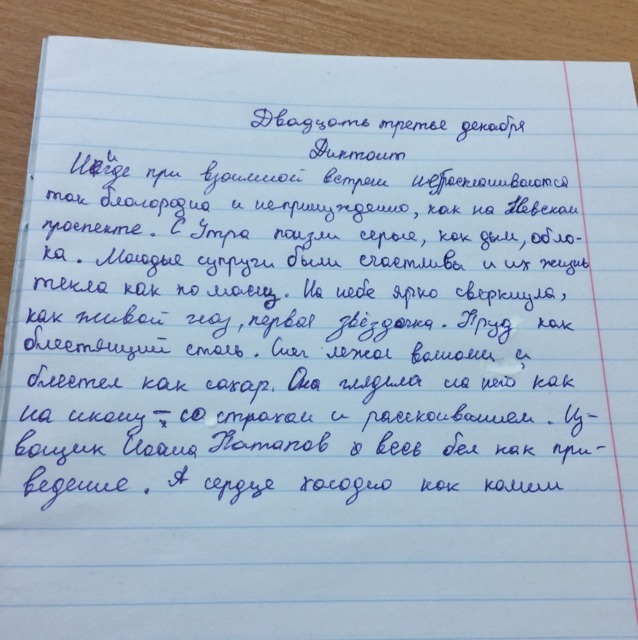 Двадцать третье декабря
Диктант
Нигде при взаимной встречи не раскланиваются
так благородна и непринуждённо, как на Невском
проспекте. С Утра ползли серые, как дым, обло-
ка. Молодые супруги были счастливы и их жизнь
текла как по маслу. На небе ярко сверкнула,
как живой глаз, первая звёздочка. Пруд как
блестящий сталь. Снег лежал волнами и
блестел как сахар. Она глядела на него как
на икону – со страхом и раскаиванием. Из-
вощик Иоана Потапов весь бел как при-
ведение. А сердце холодно как камни